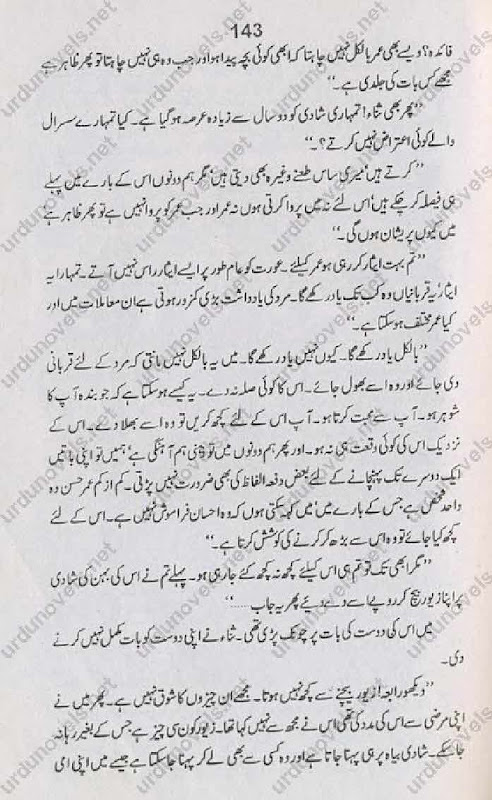 143
فائدہ؟ ویسے بھی عمر بالکل نہیں چاہتا کہ ابھی کوئی بچہ پیدا ہو اور جب وہ ہی نہیں چاہتا تو پھر ظاہر ہے
مجھے کس بات کی جلدی ہے۔‘‘
’’پھر بھی ثناء! تمہاری شادی کو دو سال سے زیادہ عرصہ ہو گیا ہے۔ کیا تمہارے سسرال
والے کوئی اعتراض نہیں کرتے؟۔‘‘
’’کرتے ہیں‘ میری ساس طعنے وغیرہ بھی دیتی ہیں‘ مگر ہم دونوں اس کے بارے میں پہلے
ہی فیصلہ کر چکے ہیں‘ اس لئے نہ میں پروا کرتی ہوں نہ عمر اور جب عمر کو پروا نہیں ہے تو پھر ظاہر ہے‘
میں کیوں پریشان ہوں گی۔‘‘
’’تم بہت ایثار کر رہی ہو عمر کیلئے۔ عورت کو عام طور پر ایسے ایثار راس نہیں آتے۔ تمہارا یہ
ایثار‘ یہ قربانیاں وہ کب تک یاد رکھے گا۔ مرد کی یادداشت بڑی کمزور ہوتی ہے ان معاملات میں اور
کیا عمر مختلف ہو سکتا ہے۔‘‘
’’بالکل یاد رکھے گا۔ کیوں نہیں یاد رکھے گا۔ میں یہ بالکل نہیں مانتی کہ مرد کے لئے قربانی
دی جائے اور وہ اسے بھول جائے۔ اس کا کوئی صلہ نہ دے۔ یہ کیسے ہو سکتا ہے کہ جو بندہ آپ کا
شوہر ہو۔ آپ سے محبت کرتا ہو۔ آپ اس کے لئے کچھ کریں تو وہ اسے بھلا دے۔ اس کے
نزدیک اس کی کوئی وقعت ہی نہ ہو۔ اور پھر ہم دونوں میں تو ذہنی ہم آہنگی ہے‘ ہمیں تو اپنی باتیں
ایک دوسرے تک پہنچانے کے لئے بعض دفعہ الفاظ کی بھی ضرورت نہیں پڑتی۔ کم از کم عمر حسن وہ
واحد شخص ہے جس کے بارے میں‘ میں کہہ سکتی ہوں کہ وہ احسان فراموش نہیں ہے۔ اس کے لئے
کچھ کیا جائے تو وہ اس سے بڑھ کر کرنے کی کوشش کرتا ہے۔‘‘
’’مگر ابھی تک تو تم ہی اس کیلئے کچھ نہ کچھ کئے جا رہی ہو۔ پہلے تم نے اس کی بہن کی شادی
پر اپنا زیور بیچ کر روپے اسے دے دیئے پھر یہ جاب......‘‘
میں اس کی دوست کی بات پر چونک پڑی تھی۔ ثناء نے اپنی دوست کو بات مکمل نہیں کرنے
دی۔
’’دیکھو رابعہ! زیور بیچنے سے کچھ نہیں ہوتا۔ مجھے ان چیزوں کا شوق نہیں ہے۔ پھر میں نے
اپنی مرضی سے اس کی مدد کی تھی اس نے مجھ سے نہیں کہا تھا۔ زیور کون سی چیز ہے جس کے بغیر رہا نہ
جا سکے۔ شادی بیاہ پر ہی پہنا جاتا ہے اور وہ کسی سے بھی لے کر پہنا جا سکتا ہے جیسے میں اپنی امی
urdunovels.net